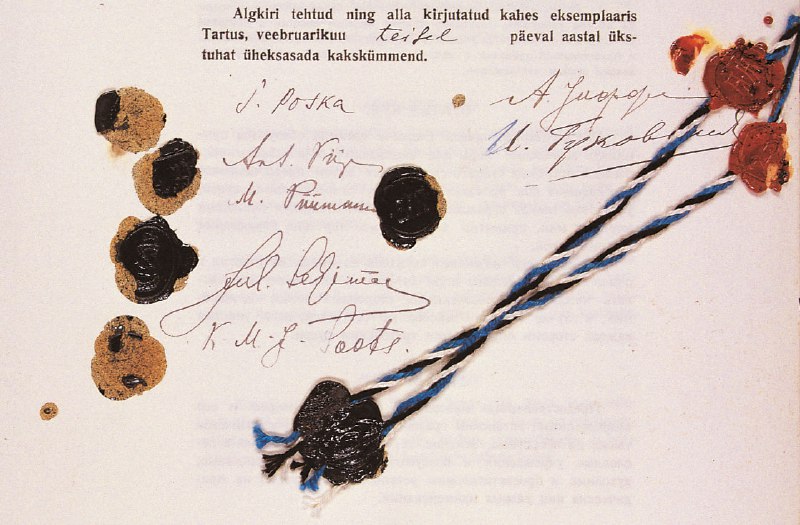 Algkiri tehtud ning alla kirjutatud kahes eksemplaaris
Tartus, veebruarikuu teisel päeval aastal üks-
tuhat üheksasada kakskümmend.
J. Poska
А. Иоффе
Ant. Piip
И. Гуковский
M. Püümann
Jul. Seljamaa
K. M.-J. Soots.